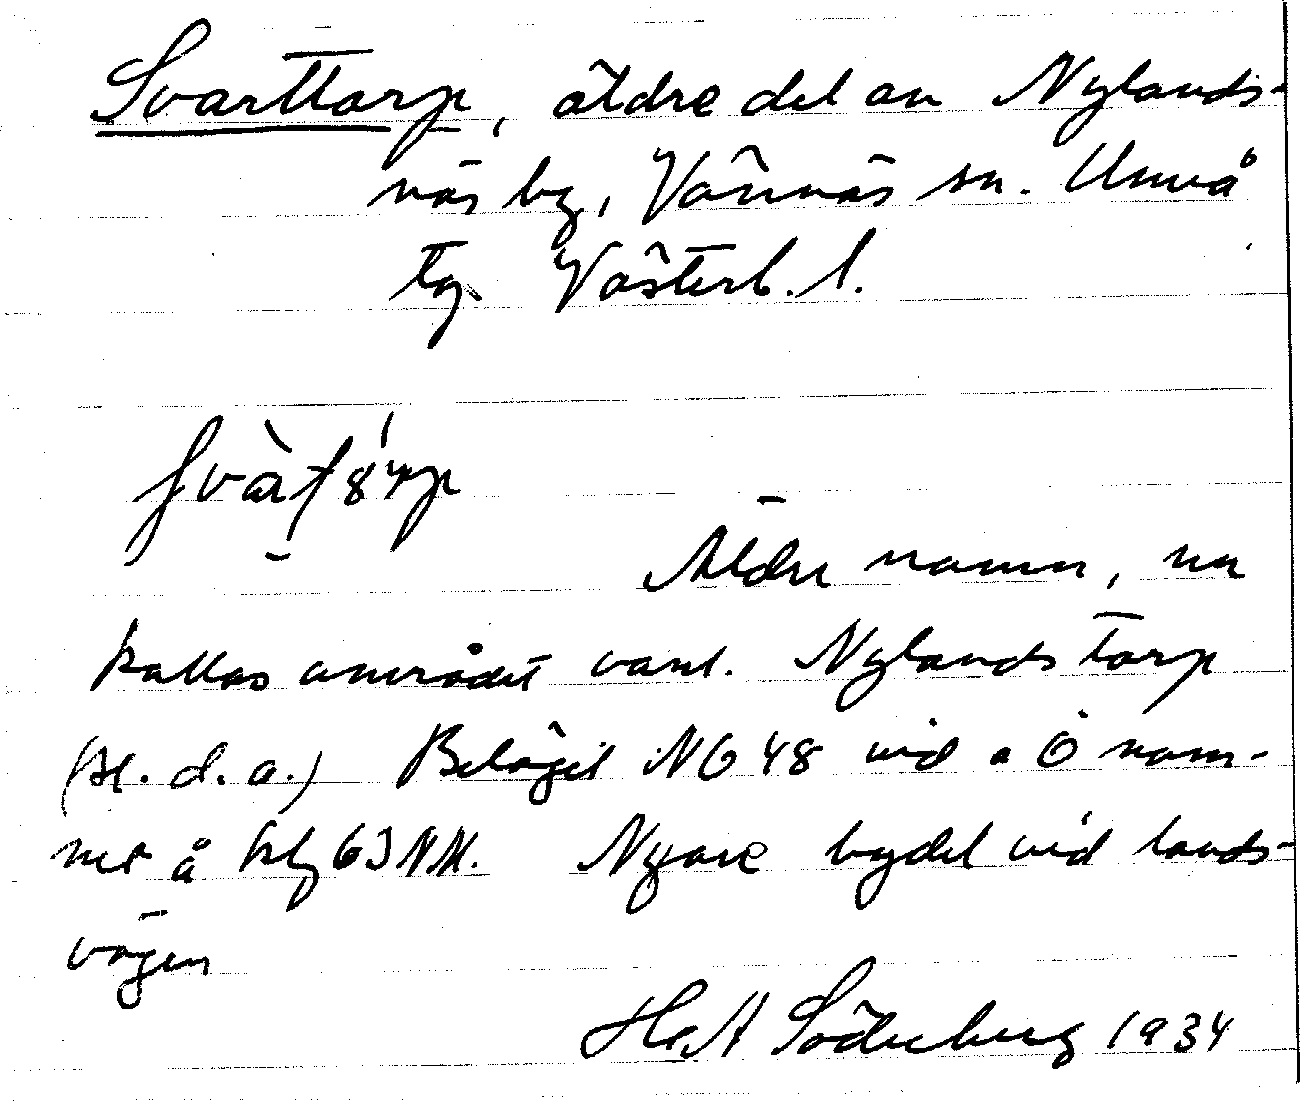 Svarttorp, äldre del av Nylands-
näs by, Vännäs sn. Umeå
tg Västerb. l.
Äldre namn, nu
kallas området vanl. Nylandstorp
(st. d. a.) Beläget NO 48 vid a Ö nam-
net å kbg 63 NV. Nyare bydel vid lands-
vägen
H. A Söderberg 1934